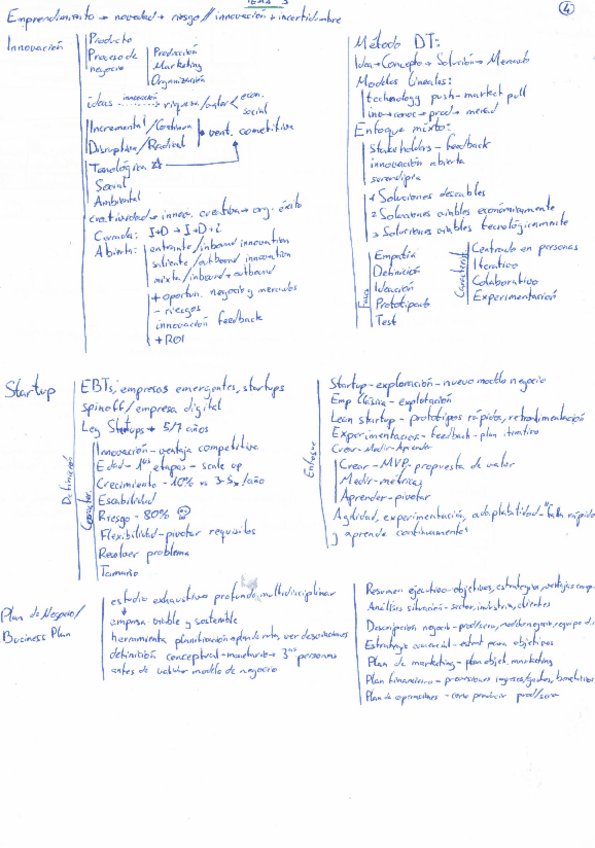 TEMA 3
Emprendimiento → novedad + riesgo // innovación + incertidumbre
4
Innovación
Producto
Proceso de negocio
Producción
Marketing
Organización
ideas innovación → riqueza/valor < econ. social
Incremental / Continua
Disruptiva / Radical
vent. competitiva
Tecnológica
Social
Ambiental
creatividad → innov. creativa → org. éxito
Formula: I+D → I+D+i
Abierta:
entrante/inbound innovation
saliente/outbound innovation
mixta/inbound + outbound
+ oportun. negocio y mercados
- riesgos
innovación feedback
+ ROI
Método DT:
Idea → Concepto → Solución → Mercado
Modelos Lineales:
technology push - market pull
inv → conoc → prod → mercad
Enfoque mixto:
stakeholders - feedback
innovación abierta
serendipia
1 Soluciones deseables
2 Soluciones viables económicamente
3 Soluciones viables tecnológicamente
Fases
Empatía
Definición
Ideación
Prototipado
Test
Caracterist.
Centrado en personas
Iterativo
Colaborativo
Experimentación
Startup
Definición
EBTs, empresas emergentes, startups
spinoff / empresa digital
Ley Startups → 5/7 años
Caracter.
Innovación - ventaja competitiva
Edad - 1as etapas - scale up
Crecimiento - 10% vs 3-5x/año
Escabilidad
Riesgo - 80%
Flexibilidad - pivotar requisitos
Resolver problema
Tamaño
Enfoque
Startup - exploración - nuevo modelo negocio
Emp Clásica - explotación
Lean startup - prototipos rápidos, retroalimentación
Experimentación - feedback - plan iterativo
Crear - Medir - Aprender
Crear - MVP - propuesta de valor
Medir - métricas
Aprender - pivotar
Agilidad, experimentación, adaptabilidad - "falla rápido
y aprende continuamente"
Plan de Negocio/
Business Plan
estudio exhaustivo profundo, multidisciplinar
empresa viable y sostenible
herramienta planificación
definición conceptual 3as personas
antes de validar modelo de negocio
Resumen ejecutivo - objetivos, estrategias, ventajas comp.
Análisis situación - sector, industria, clientes
Descripción negocio - prod/serv, modelo negocio, equipo
Estrategia comercial - estrat para objetivos
Plan de marketing - plan objet. marketing
Plan financiero - previsiones ingresos/gastos, beneficios
Plan de operaciones - como producir prod/serv